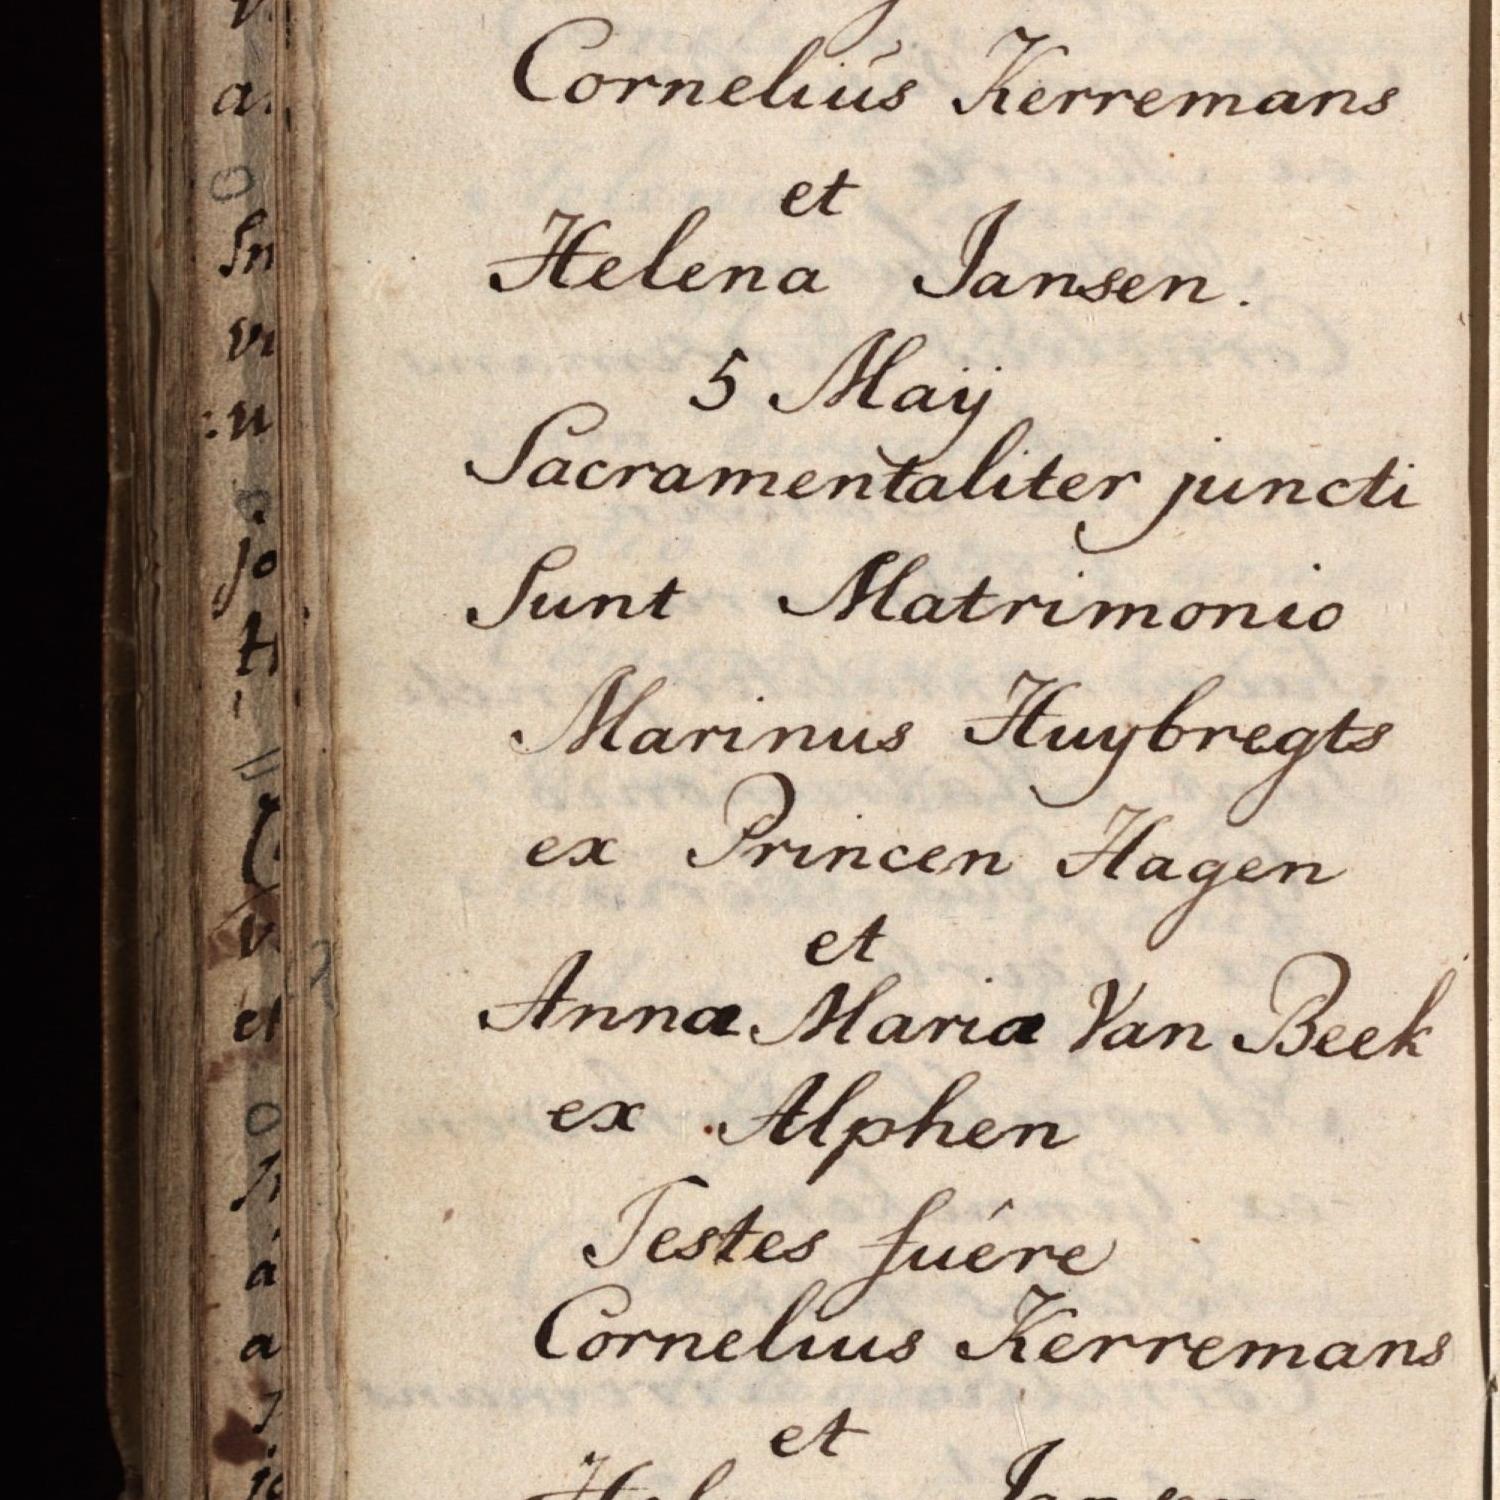 Cornelius Kerremans
et
Helena Jansen.
5 Maij
Sacramentaliter juncti
Sunt Matrimonio
Marinus Huybregts
ex Princen Hagen
et
Anna Maria Van Beek
ex Alphen
Testes fuêre
Cornelius Kerremans
et